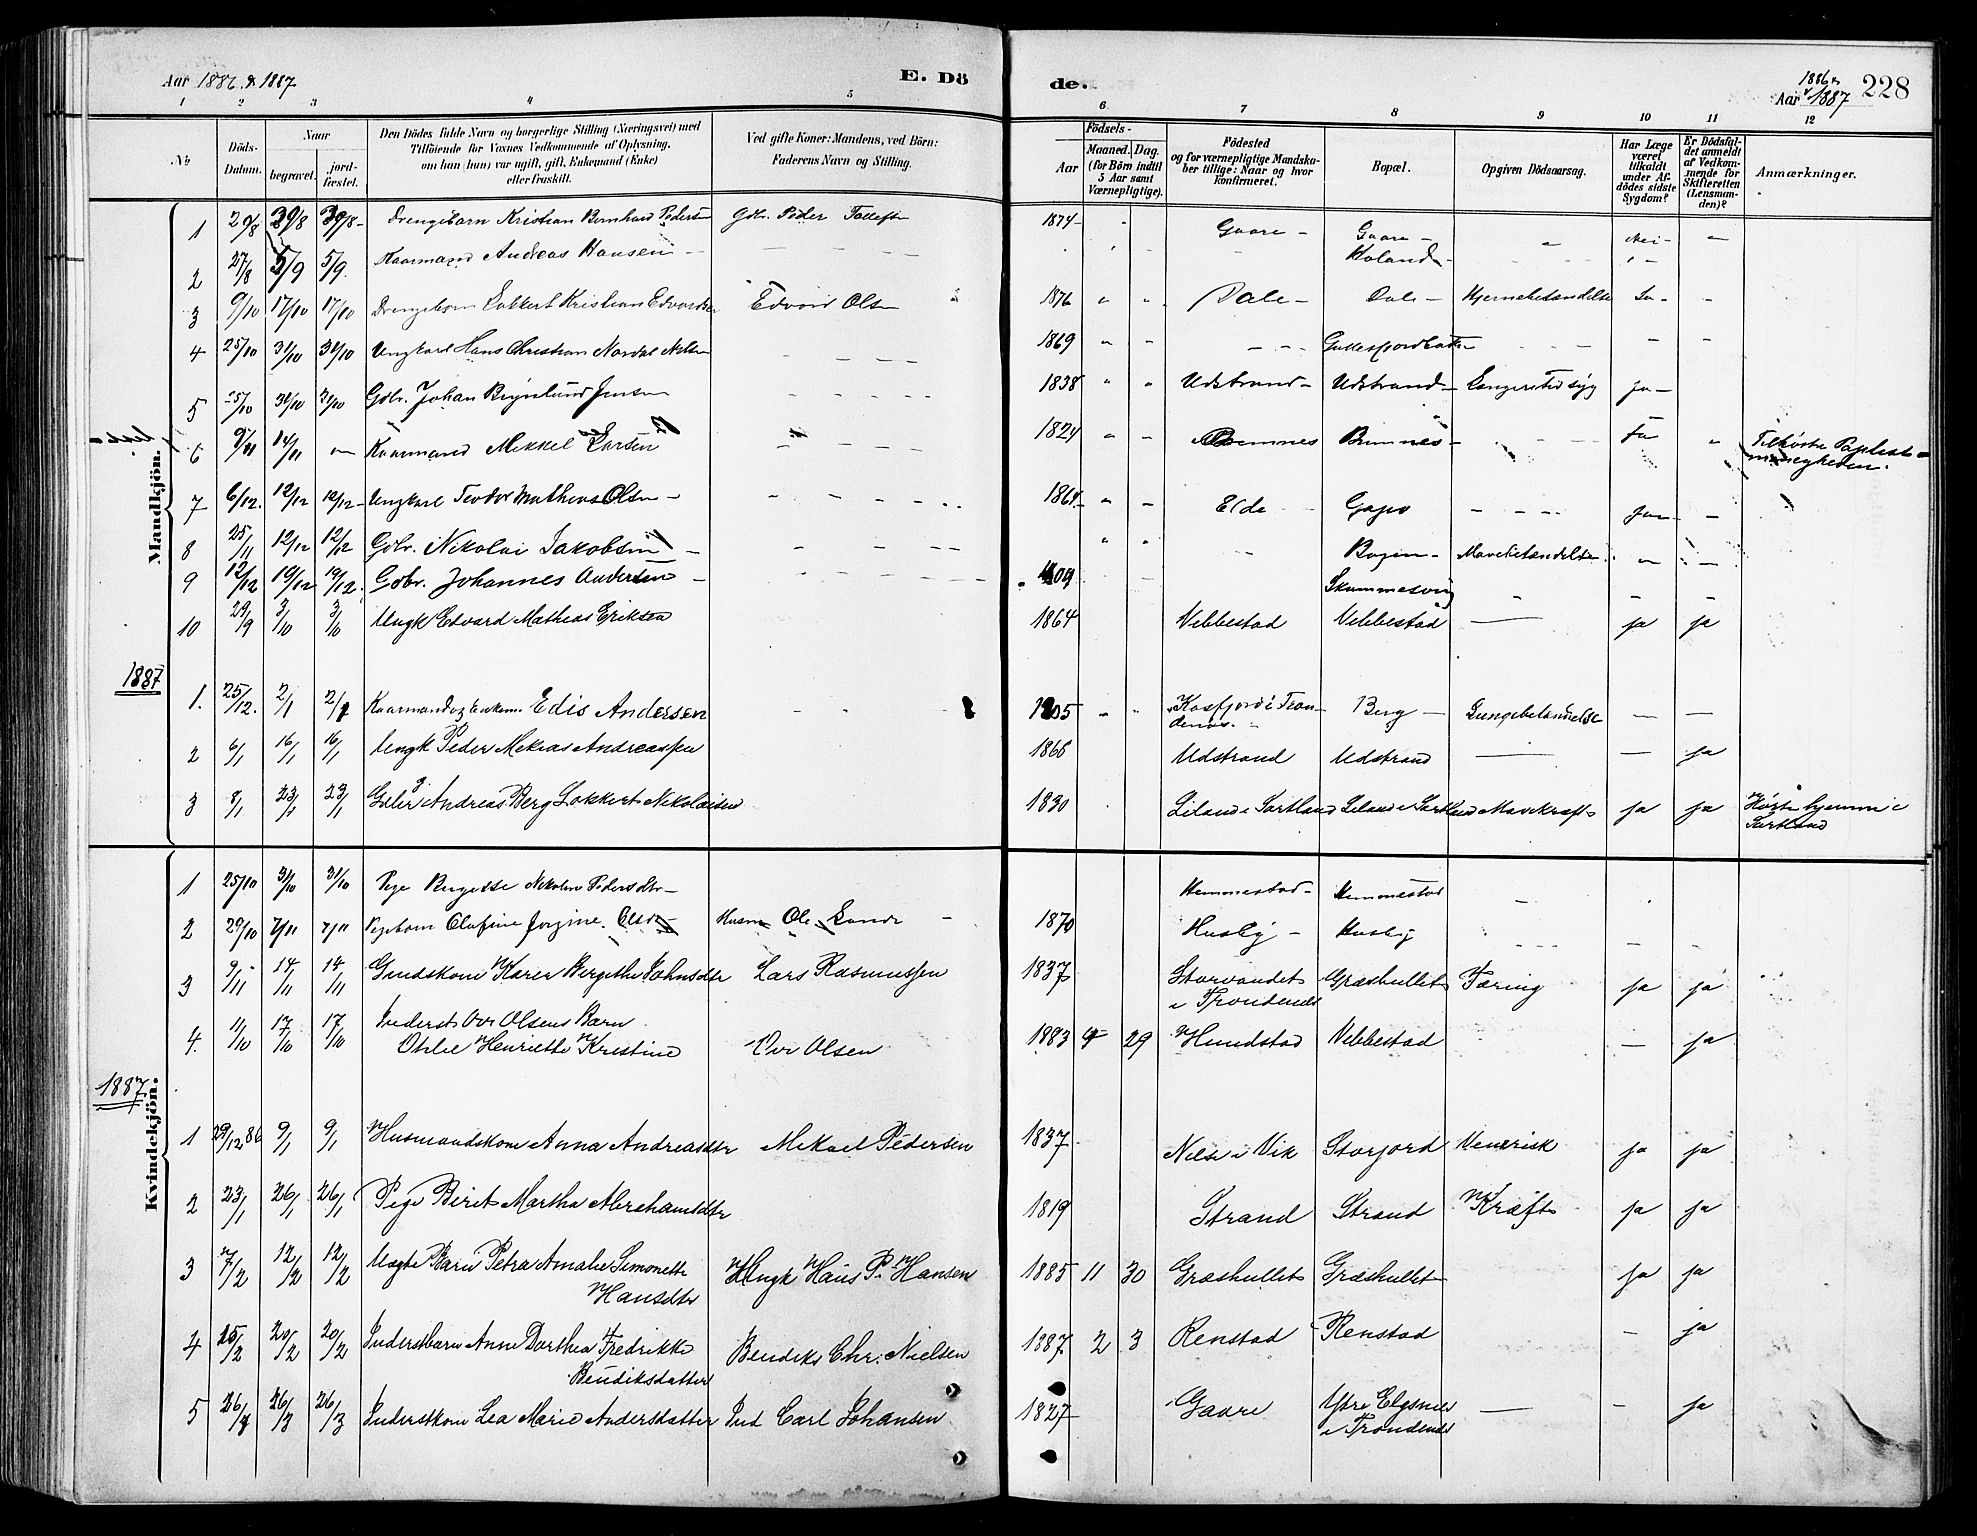 Aar 1886 & 1887
E. Dö
de.
1886 &
Aar 1887
228
1 2 3 4 5 6 7 8 9 10 11 12
No
Döds-Datum.
Naar
begravet.
jord-fæstet.
Den Dödes fulde Navn og borgerlige Stilling (Næringsvei) med
Tilföiende for Voxnes Vedkommende af Oplysning,
om han (hun) var ugift, gift, Enkemand (Enke)
eller fraskilt.
Ved gifte Koner: Mandens, ved Börn:
Faderens Navn og Stilling.
Födsels-
Aar
Maaned. Dag.
(for Börn indtil
5 Aar samt
Værnepligtige).
Födested
og for værnepligtige Mandska-
ber tillige: Naar og hvor
Konfirmeret.
Bopæl.
Opgiven Dödsaarsag.
Har Læge
været
tilkaldt
under Af-
dödes sidste
Sygdom?
Er Dödsfal-
det anmeldt
af Vedkom-
mende for
Skifteretten
(Lensman-
den)?
Anmærkninger.
Mandkjön.
1 29/8 Drengebarn Kristian Bernhard Pedersen Gdbr. Peder 1874 Gaare Gaare Nei
2 27/8 5/9 5/9 Kaarmand Andreas Hansen Roland
3 9/10 17/10 17/10 Kristian Edvardsen Edvard Olsen 1876 Dale Dale Hjernebetændelse Ja
4 25/10 31/10 31/10 Ungkarl Hans Christian Nordal 1869
5 25/10 31/10 31/10 Gdbr. Johan Brynlund Jensen 1838 Udstrand Udstrand Længere Tid syg Ja
6 9/11 14/11 Kaarmand Mikkel Larsen 1824 Bremnes Bremnes Ja
7 6/12 12/12 12/12 Ungkarl Teodor Mathias Olsen 1864 Elde
8 25/11 12/12 12/12 Gdbr. Nikolai Jakobsen Bogen Mavebetændelse
9 12/12 19/12 19/12 Gdbr. Johannes Andersen
10 29/9 3/10 3/10 Ungk Edvard Mathias Eriksen 1864 Vebbestad Vebbestad ja ja
1887
1. 25/12. 2/1 2/1 Kaarmand og Enkem. Edis Andersen 1805 Kasfjord i Tron-
denæs. Berg Lungebetændelse
2 6/1 16/1 16/1 Ungk Peder Mekias Andreassen 1866 Udstrand Udstrand ja
3 8/1 23/1 23/1 Gdbr Andreas Berg Lokkert Nikolaisen 1830 Liland i Sortland Liland i Sortland Mavekræft ja ja hjemme i
Sortland
Kvindekjön.
1 25/10 31/10 31/10 Pige Bergitte Nikoline Pedersdtr Hemmestad Hemmestad
2 29/10 7/11 7/11 Pigebarn Olufine Jorgine Olsdtr Husm Ole 1870 Husby Husby
3 9/11 14/11 14/11 Karen Bergithe Johnsdtr Lars Rasmussen 1837 Storvandet
i Trondenæs Græshullet Tæring ja ja
4. 11/10 17/10 17/10 Inderst Ovr Olsens Barn
Othlie Henriette Kristine Ovr Olsen 1883 9 29 Hundstad Vebbestad ja
1887
1 29/12 86 9/1 9/1 Husmandskone Anna Andreasdtr Mikael Pedersen 1837 Vik Storjord Venerisk ja ja
2 23/1 26/1 26/1 Pige Beret Martha Abrahamsdtr 1819 Strand Strand Kræft ja ja
3 7/2 12/2 12/2 Petra Amalie Simonette
Hansdtr Ungk Hans P. Hansen 1885 11 30 Græshullet Græshullet ja ja
4 15/2 20/2 20/2 Inderstbarn Anne Dorthea Fredrikke
Bendiksdatter Bendiks Chr. Nielsen 1887 2 3 Renstad Renstad ja
5 26/3 26/3 Inderstkone Lea Marie Andersdatter Ind Carl Johansen 1827 Gaare Ytre Elgsnæs
i Trondenæs ja